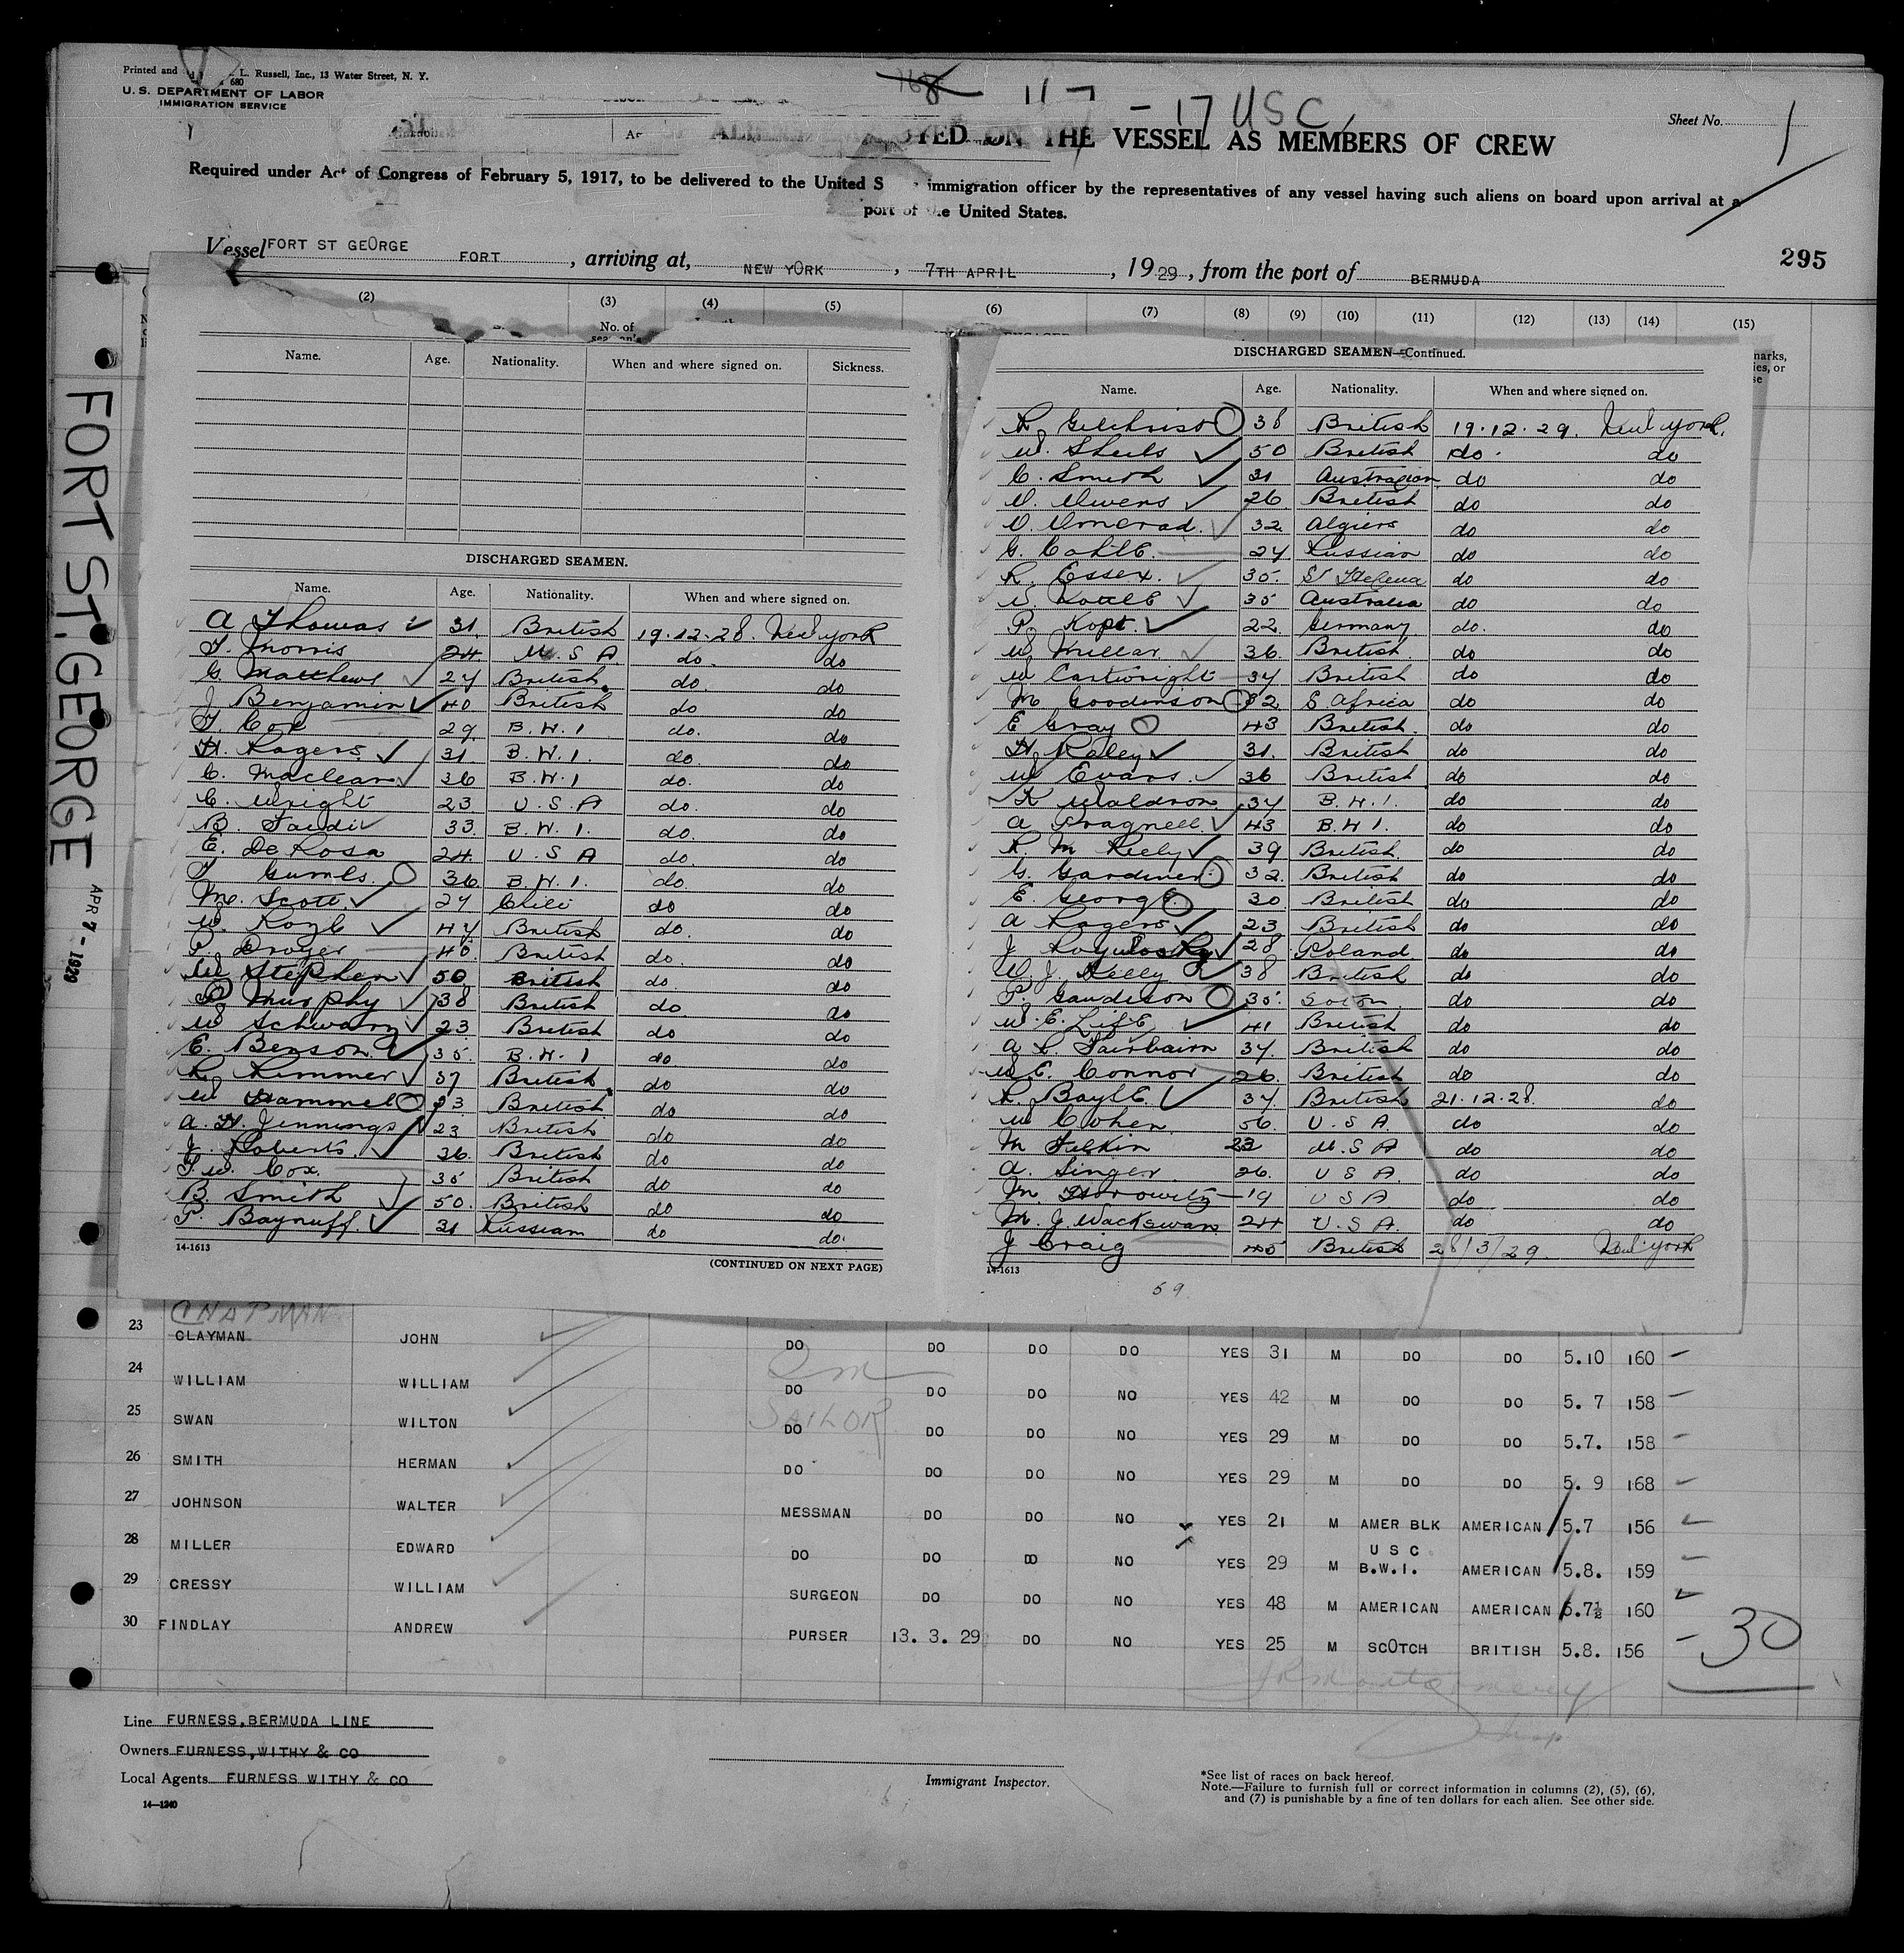 Printed and L. Russell, Inc., 13 Water Street, N. Y.
680
U. S. DEPARTMENT OF LABOR
IMMIGRATION SERVICE
168 117 - 17 USC
Sheet No. 1
ON THE VESSEL AS MEMBERS OF CREW
Required under Act of Congress of February 5, 1917, to be delivered to the United S immigration officer by the representatives of any vessel having such aliens on board upon arrival at a
port of the United States.
Vessel FORT ST GEORGE FORT, arriving at, NEW YORK, 7TH APRIL, 1929, from the port of BERMUDA
295
(2) (3) (4) (5) (6) (7) (8) (9) (10) (11) (12) (13) (14) (15)
No. of
FORT ST. GEORGE
APR 7 - 1929
Name. Age. Nationality. When and where signed on. Sickness.
DISCHARGED SEAMEN.
Name. Age. Nationality. When and where signed on.
A Thomas 31 British 19.12.28. New York
T. Morris 24 U. S A do. do
G. Matthews 27 British do. do
J Benjamin 40 British do do
T. Cox 29. B. W. I do. do
H. Rogers 31. B. W. I. do. do
C. Maclean 36 B. W. I do. do
C. Wright 23 U. S. A do. do
B. 33. B. W. I. do. do
E. De Rosa 24. U. S A do do
T Gumbs. 36. B. W. I. do. do
Scott. 27 Chili do do
W. 47 British do. do
40. British do. do
W Stephen 50. British do. do
P Murphy 38 British do do
W Schwarz 23 British do do
E. Benson. 35 B. W. I do. do
R. Rimmer 37 British do do
W Hammel 33 British do do
A. H. Jennings 23 British do do
J. Roberts. 36. British do do
T. W. Cox. 35 British do do
B. Smith 50. British do do
P. Baynuff. 31 Russian do do.
14-1613
(CONTINUED ON NEXT PAGE)
DISCHARGED SEAMEN—Continued.
Name. Age. Nationality. When and where signed on.
R. Gilchrist 38 British 19.12.29. New York.
W. Sheils 50 British do. do
C. Smith 31 Australian do do
O. Owens 26. British do do
O. 32. Algiers do do
G. 27 Russian do do
R. Essex. 35. St Helena do do
35 Australia do do
P. Kopt. 22. Germany do. do
W. Millar 36. British. do do
W Cartwright 37 British do do
M Goodinson 32 S. Africa do do
E Gray 43 British. do do
H. Raley 31. British do do
W Evans. 36 British do do
K Waldron. 37 B. W. I. do do
A Pragnell. 43 B. W I. do do
R. M Kiely 39 British. do do
G. Gardiner 32. British do do
E. George 30. British do do
A Rogers 23 British do do
J 28. Poland do do
W. J. Kelly 38 British do do
P. Gaudeson 35. do do
W. E. Life 41 British do do
A R. Fairbairn 37. British do do
W. E. Connor 26. British do do
R. Bayle. 37 British 21.12.28. do
W Cohen. 56. U. S A. do do
M 23 U. S A do do
A. Singer. 26. U S A. do do
M. Horowitz 19 U S A do do
M. J. Wackswan 24 U. S. A. do do
J Craig 45 British 28/3/29. New York
14-1613
59
CHAPMAN
23 CLAYMAN JOHN DO DO DO DO YES 31 M DO DO 5.10 160
24 WILLIAM WILLIAM DO DO DO NO YES 42 M DO DO 5. 7 158
SAILOR
25 SWAN WILTON DO DO DO NO YES 29 M DO DO 5.7. 158
26 SMITH HERMAN DO DO DO NO YES 29 M DO DO 5. 9 168
27 JOHNSON WALTER MESSMAN DO DO NO YES 21 M AMER BLK AMERICAN 5.7 156
U S C
28 MILLER EDWARD DO DO DO NO YES 29 M B.W.I. AMERICAN 5.8. 159
29 CRESSY WILLIAM SURGEON DO DO NO YES 48 M AMERICAN AMERICAN 5.7½ 160
30 FINDLAY ANDREW PURSER 13. 3. 29 DO NO YES 25 M SCOTCH BRITISH 5.8. 156
30
Line FURNESS, BERMUDA LINE
Owners FURNESS, WITHY & CO
Local Agents FURNESS WITHY & CO
14—1240
Immigrant Inspector.
*See list of races on back hereof.
Note.—Failure to furnish full or correct information in columns (2), (5), (6),
and (7) is punishable by a fine of ten dollars for each alien. See other side.